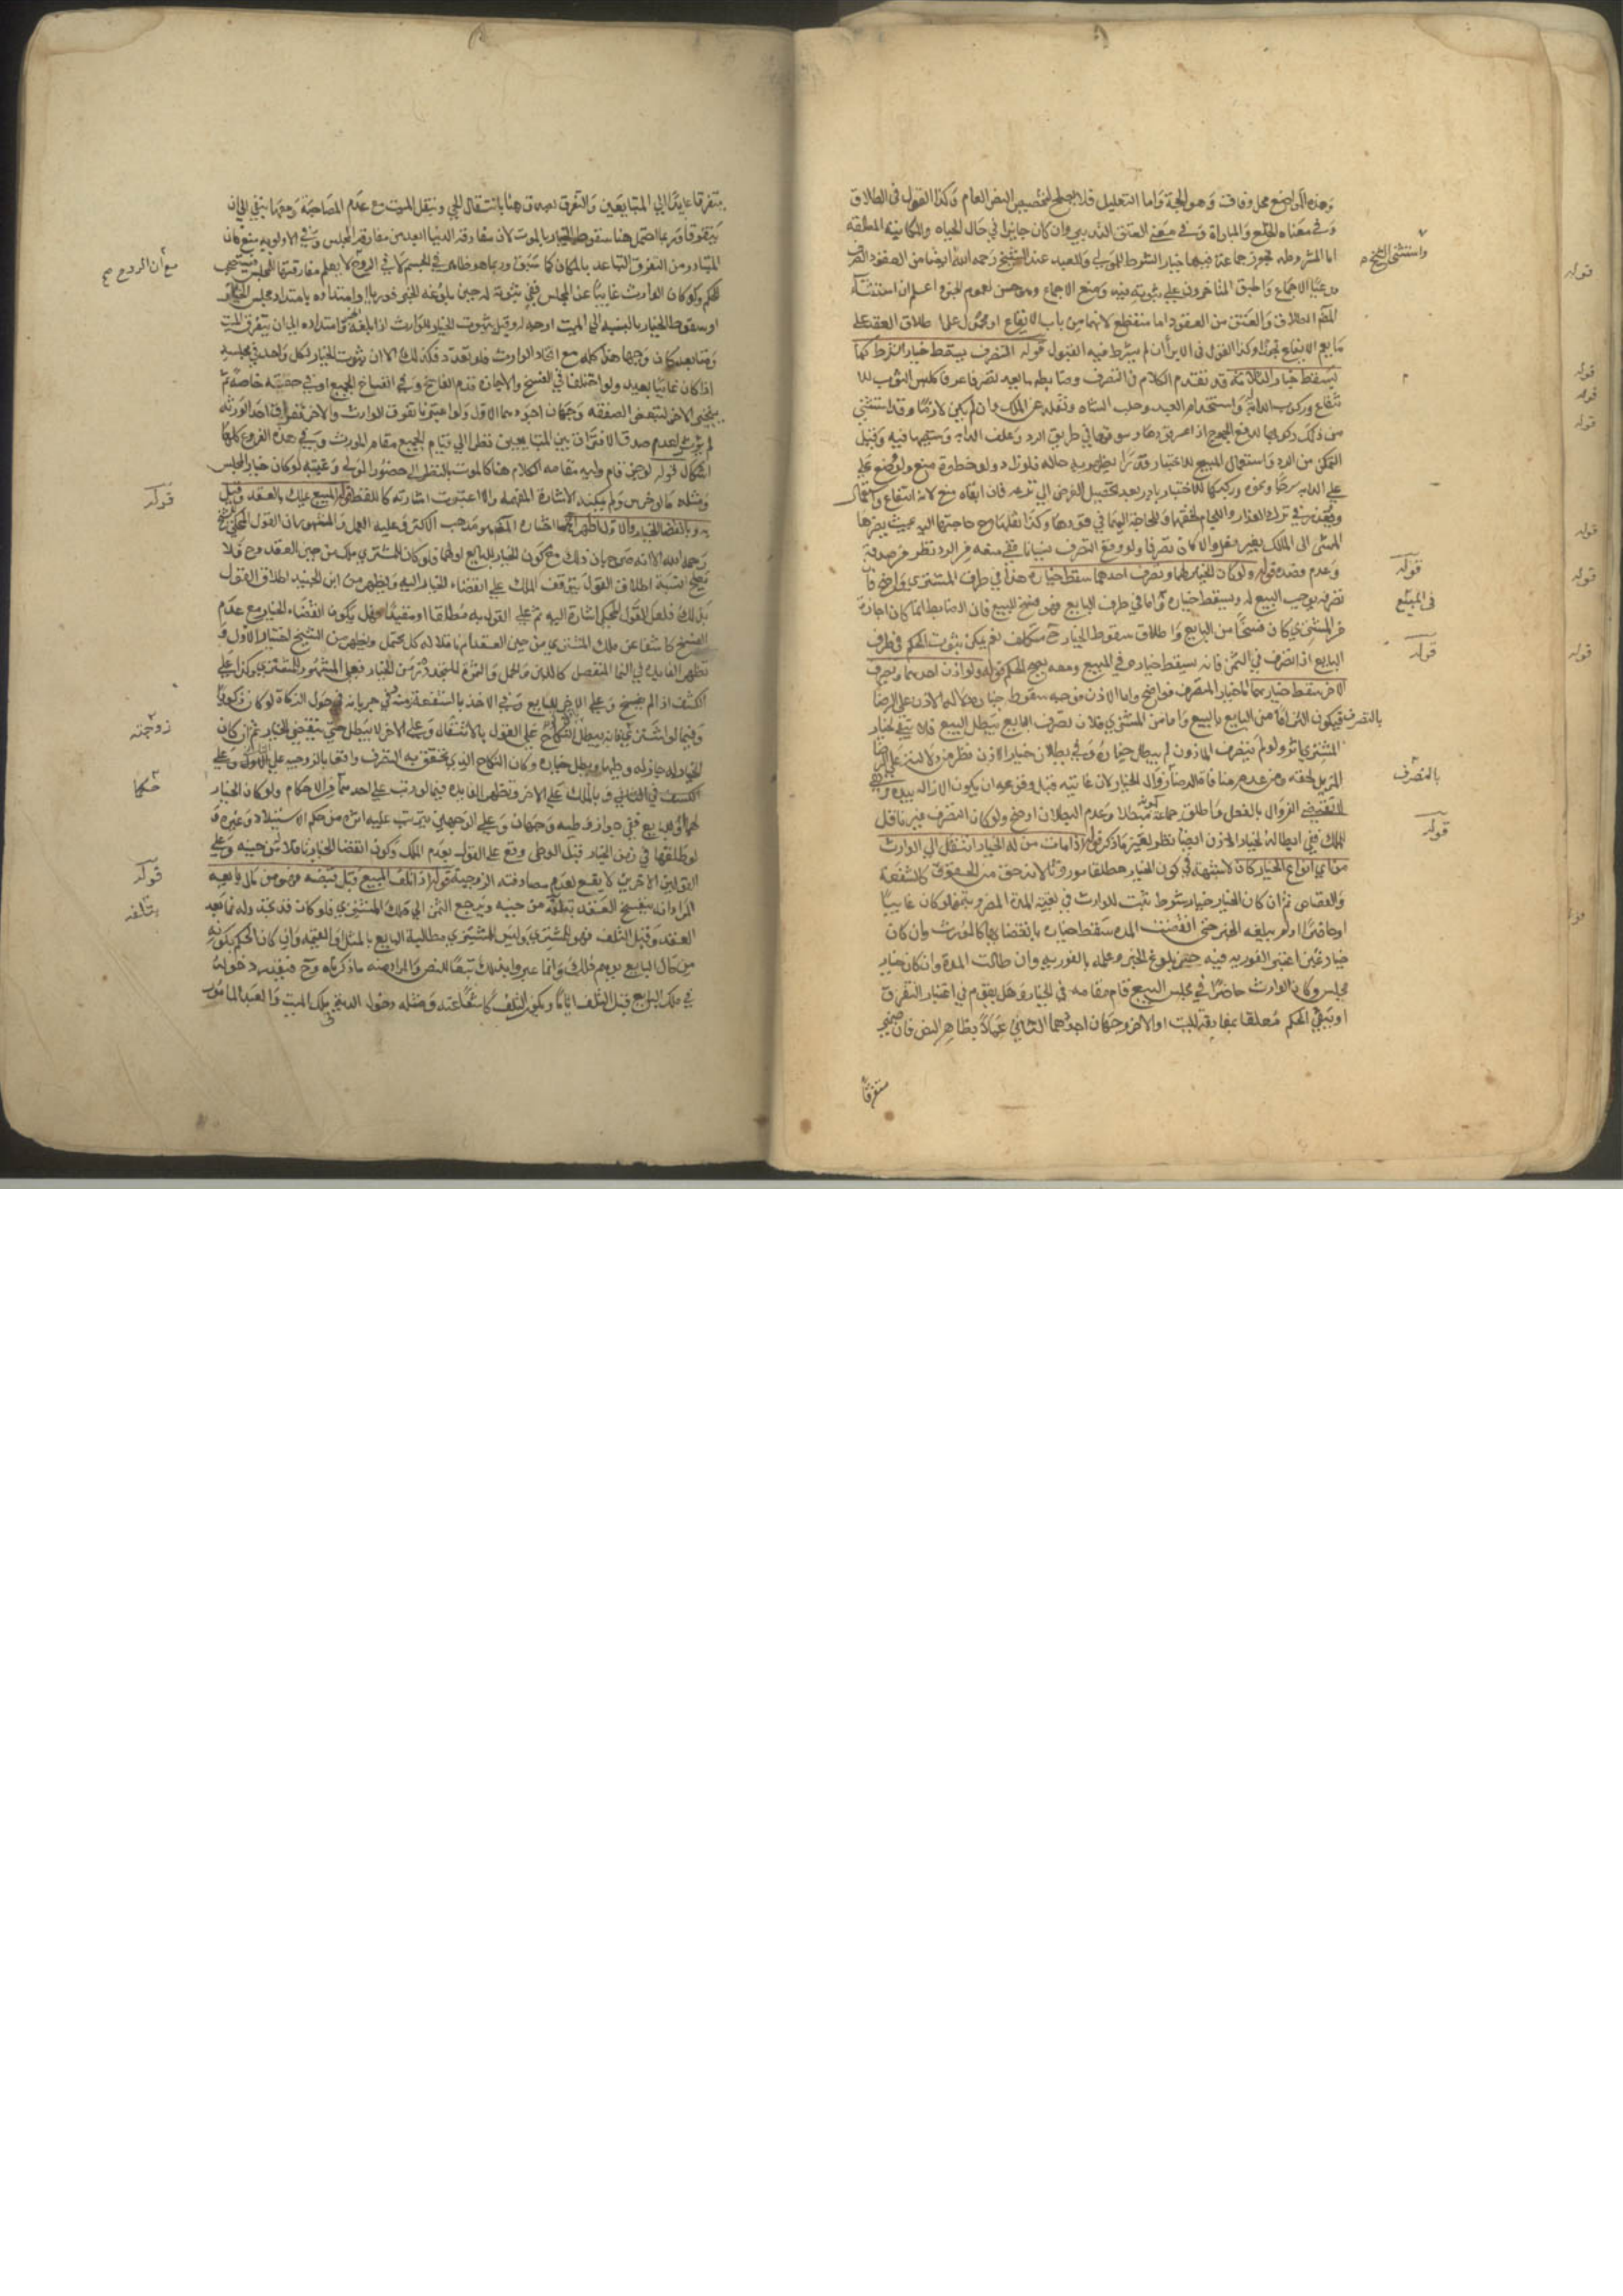 وهذه المواضع محل وفاق وهو الحجة واما التعليل فلا يصلح لتخصيص النص العام وكذا القول في الطلاق
وفي معناه الخلع والمباراة وفي معنى العتق التدبير وان كان جايزا في حال الحياه والمكاتبة المطلقه
اما المشروطه فجوز جماعة فيها خيار الشرط للمولى وللعبد عند الشيخ رحمه الله ايضا من العقود الصرف
مدعيا الاجماع واطبق المتاخرون على ثبوته فيه ومنع الاجماع وهو حسن لعموم الخبر واعلم ان استثناء
المصم الطلاق والعتق من العقود اما منقطع لانهما من باب الايقاع او محمول على اطلاق العقد على
ما يعم الايقاع تجوزا وكذا القول في الابرأ ان لم يشرط فيه القبول قوله التصرف يسقط خيار الشرط كما
يسقط خيار الثلاثة قد تقدم الكلام في التصرف وضابطه ما يعد تصرفا عرفا كلبس الثوب للا
نتفاع وركوب الدابة واستخدام العبد وحلب الشاه ونقله عن الملك وان لم يكن لازما وقد استثنى
من ذلك ركوبها لدفع الجموح اذا عسر قودها وسوقها في طريق الرد وعلف الدابه وسقيها فيه وقبل
التمكن من الرد واستعمال المبيع للاختبار قدرا يظهر به حاله فلو زاد ولو خطوة منع ولو وضع على
على الدابه سرجا ونحوه وركبها للاختبار بادر بعد تحصيل الغرض الى نزعه فان ابقاه منع لانه انتفاع واستعمال
ويعذر في ترك العذار واللجام لخفتهما وللحاجة اليهما في قودها وكذا نعلها مع حاجتها اليه بحيث يضرها
المشى الى المالك بغير نعل والا كان تصرفا ولو وقع التصرف نسيانا ففي منعه من الرد نظر من صدقه
وعدم قصده قوله ولو كان الخيار لهما وتصرف احدهما سقط خياره هذا في طرف المشترى واضح فان
تصرفه يوجب البيع له ويسقط خياره واما في طرف البايع فهو فسخ للبيع فان الضابط انما كان اجازة
من المشترى كان فسخا من البايع واطلاق سقوط الخيار ح متكلف نعم يمكن ثبوت الحكم في طرف
البايع اذا تصرف في الثمن فانه يسقط خياره في المبيع ومعه يصح الحكم قوله ولو اذن احدهما وتصرف
الاخر سقط خيارهما اما خيار المتصرف فواضح واما الاذن فموجبه سقوط خياره دلالة الاذن على الرضا
بالتصرف فيكون التزاما من البايع بالبيع واما من المشترى فلان تصرف البايع يبطل البيع فلا يبقى لخيار
المشترى اثر ولو لم يتصرف الماذون لم يبطل خياره وفي بطلان خيار الاذن نظر من دلالته على الرضا
المزيل لحقه ومن عدم منافاة الرضا بزوال الخيار لان غايته قبل وقوعه ان يكون الازاله بيده وهي
لا تقتضى الزوال بالفعل واطلق جماعة كونه مبطلا وعدم البطلان اوضح ولو كان التصرف غير ناقل
للملك ففي ابطاله لخيار الاذن ايضا نظر لعين ما ذكر قوله اذا مات من له الخيار انتقل الى الوارث
من اي انواع الخيار كان لا شبهة في كون الخيار مطلقا موروثا لانه حق من الحقوق كالشفعة
والقصاص ثم ان كان الخيار خيار شرط ثبت للوارث في بقية المدة المضروبة فلو كان غايبا
او حاضرا ولم يبلغه الخبر حتى انقضت المده سقط خياره بانقضايها كالمورث وان كان
خيار غبن اعتبر الفوريه فيه حين بلوغ الخبر وعلمه بالفوريه وان طالت المدة وان كان خيار
مجلس وكان الوارث حاضرا في مجلس البيع قام مقامه في الخيار وهل يقوم في اعتبار التفرق
او يبقى الحكم معلقا بمفارقة الميت او الاخر وجهان اجودهما الثاني عملا بظاهر النص فان ضمير
متفرقا
واستثنى الشيخ
قوله
قوله
قوله
قوله
قوله
قوله
قوله
في المبيع
قوله
قوله
بالتصرف
قوله
يتفرقا عايد الى المتبايعين والتفرق يصدق هنا بانتقال الحي وبنقل الميت مع عدم المصاحبة ومعها يبقى الى ان
يتفرقا وربما احتمل هنا سقوط الخيار بالموت لان مفارقه الدنيا ابعد من مفارقة المجلس وفي الاولويه منع فان
المتبادر من التفرق التباعد بالمكان كما سبق وربما هو ظاهر في الجسم لا في الروح لا يعلم مفارقتها للمجلس فيستصحب
الحكم ولو كان الوارث غايبا عن المجلس ففي ثبوته له حين بلوغه الخبر فوريا او امتداده بامتداد مجلس الخبر
او سقوط الخيار بالنسبه الى الميت اوجه وقيل بثبوت الخيار للوارث اذا بلغه الخبر وامتداده الى ان يتفرق الميت
ومبايعه كان وجها هذا كله مع اتحاد الوارث فلو تعدد فكذلك الا ان ثبوت الخيار لكل واحد في مجلسه
اذا كان غايبا بعيد ولو اختلفا في الفسخ والاجازة قدم الفاسخ وفي انفساخ الجميع او في حصته خاصة ثم
يتخير الاخر لتبعض الصفقه وجهان اجودهما الاول ولو اعتبرنا تفرق الوارث والاخر فتفرق احد الورثه
لم يوثر لعدم صدق الافتراق بين المتبايعين نظرا الى قيام الجميع مقام المورث وفي هذه الفروع كلها
اشكال قوله لو جن قام وليه مقامه الكلام هنا كالموت بالنظر الى حضور الولى وغيبته لو كان خيار المجلس
ومثله ما لو خرس ولم يمكنه الاشارة المفهمه والا اعتبرت اشارته كاللفظ قوله المبيع يملك بالعقد وقيل
به وبانقضاء الخيار والاول اظهر ما اختاره المصم هو مذهب الاكثر وعليه العمل والمشهور ان القول المحكي للشيخ
رحمه الله الا انه صرح بان ذلك مع كون الخيار للبايع او لهما فلو كان للمشترى ملك من حين العقد وح فلا
يصح نسبة اطلاق القول بتوقف الملك على انقضاء الخيار اليه ويظهر من ابن الجنيد اطلاق القول
بذلك فلعل القول المحكى اشارة اليه ثم على القول به مطلقا او مقيدا فهل يكون انقضاء الخيار مع عدم
الفسخ كاشفا عن ملك المشترى من حين العقد ام ناقلا له كل محتمل ويظهر من الشيخ اختيار الاول و
تظهر الفايدة في النما المنفصل كاللبن والحمل والثمره المتجدد زمن الخيار فعلى المشهور للمشترى وكذا على
الكشف اذا لم يفسخ وعلى الاخر للبايع وفي الاخذ بالشفعة زمنه وفي جريانه في حول الزكاة لو كان زكويا
وفيما لو اشترى زوجته فانه يبطل النكاح على القول بالانتقال وعلى الاخر لا يبطل حتى ينقضى الخيار ثم ان كان
الخيار له جاز له وطيها ويبطل خياره وكان النكاح الذي تحقق به التصرف واقعا بالزوجيه على الاول وعلى
الكشف في الثاني وبالملك على الاخر وتظهر الفايده فيما لو رتب على احدهما من الاحكام ولو كان الخيار
لهما او للبايع ففي جواز وطيه وجهان وعلى الوجهين يترتب عليه اثره من حكم الاستيلاد وغيره و
لو طلقها في زمن الخيار قبل الوطى وقع على القول بعدم الملك وكون انقضا الخيار ناقلا من حينه وعلى
القولين الاخرين لا يقع لعدم مصادفته الزوجية قوله اذا تلف المبيع قبل قبضه فهو من مال بايعه
المراد انه ينفسخ العقد بتلفه من حينه ويرجع الثمن الى ملك المشترى فلو كان قد تجدد له نما بعد
العقد وقبل التلف فهو للمشترى وليس للمشترى مطالبة البايع بالمثل او القيمه وان كان الحكم بكونه
من مال البايع يوهم ذلك وانما عبروا بذلك تبعا للنص والمراد منه ما ذكرناه وح فيقدر دخوله
في ملك البايع قبل التلف انا ما ويكون التلف كاشفا عنه ومثله دخول الديه في ملك الميت والعبد المامور
مع ان الروح صح
قوله
زوجته
حكما
قوله
بتلفه